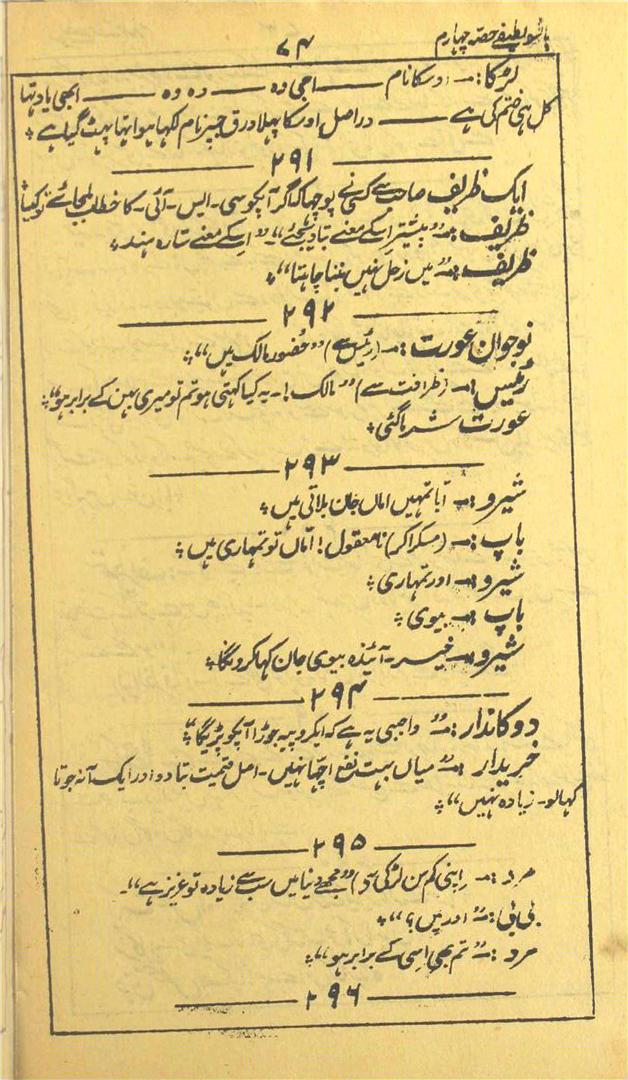 پانسو لطیفے حصہ چہارم
۷۴
لڑکا:۔ اوسکا نام ——— اجی وہ ——— وہ وہ ——— ابھی یاد تہا
کل ہی ختم کی ہے ——— دراصل اوسکا پہلا ورق جسپر نام لکہا ہوا تہا پہٹ گیا ہے ؞
۲۹۱
ایک ظریف صاحب سے کسی نے پوچہا کہ اگر آپکو سی۔ایس۔آئی۔کا خطاب ملجائے تو کیسا
ظریف:۔ ’’پیشتر اسکے معنے بتا دیجئے‘‘۔ ’’اسکے معنے ستارہ ہند ؞
ظریف:۔ ’’میں زحل نہیں بننا چاہتا‘‘ ؞
۲۹۲
نوجوان عورت:۔ (رئیس سے) ’’حضور مالک ہیں‘‘ ؞
رئیس:۔ (ظرافت سے) ’’مالک!۔ یہ کیا کہتی ہو تم تو میری بہن کے برابر ہو‘‘ ؞
عورت شرماگئی ؞
۲۹۳
شیرو:۔ ابا تمہیں اماں جان بلاتی ہیں ؞
باپ:۔ (مسکراکر) نامعقول! اماں تو تمہاری ہیں ؞
شیرو:۔ اور تمہاری ؞
باپ:۔ بیوی ؞
شیرو:۔ خیر۔ آئندہ بیوی جان کہا کرونگا ؞
۲۹۴
دوکاندار:۔ ’’واجبی یہ ہے کہ ایکروپیہ جوڑا آپکو پڑیگا‘‘
خریدار:۔ ’’میاں بہت نفع اچہا نہیں۔ اصل قیمت بتا دو اور ایک آنہ جوتا
کہالو۔ زیادہ نہیں‘‘ ؞
۲۹۵
مرد:۔ (اپنی کم سن لڑکی سے) ’’مجھے دنیا میں سب سے زیادہ تو عزیز ہے‘‘۔
بی بی:۔ ’’اور میں؟‘‘ ؞
مرد:۔ ’’تم بھی اسی کے برابر ہو‘‘ ؞
۲۹۶